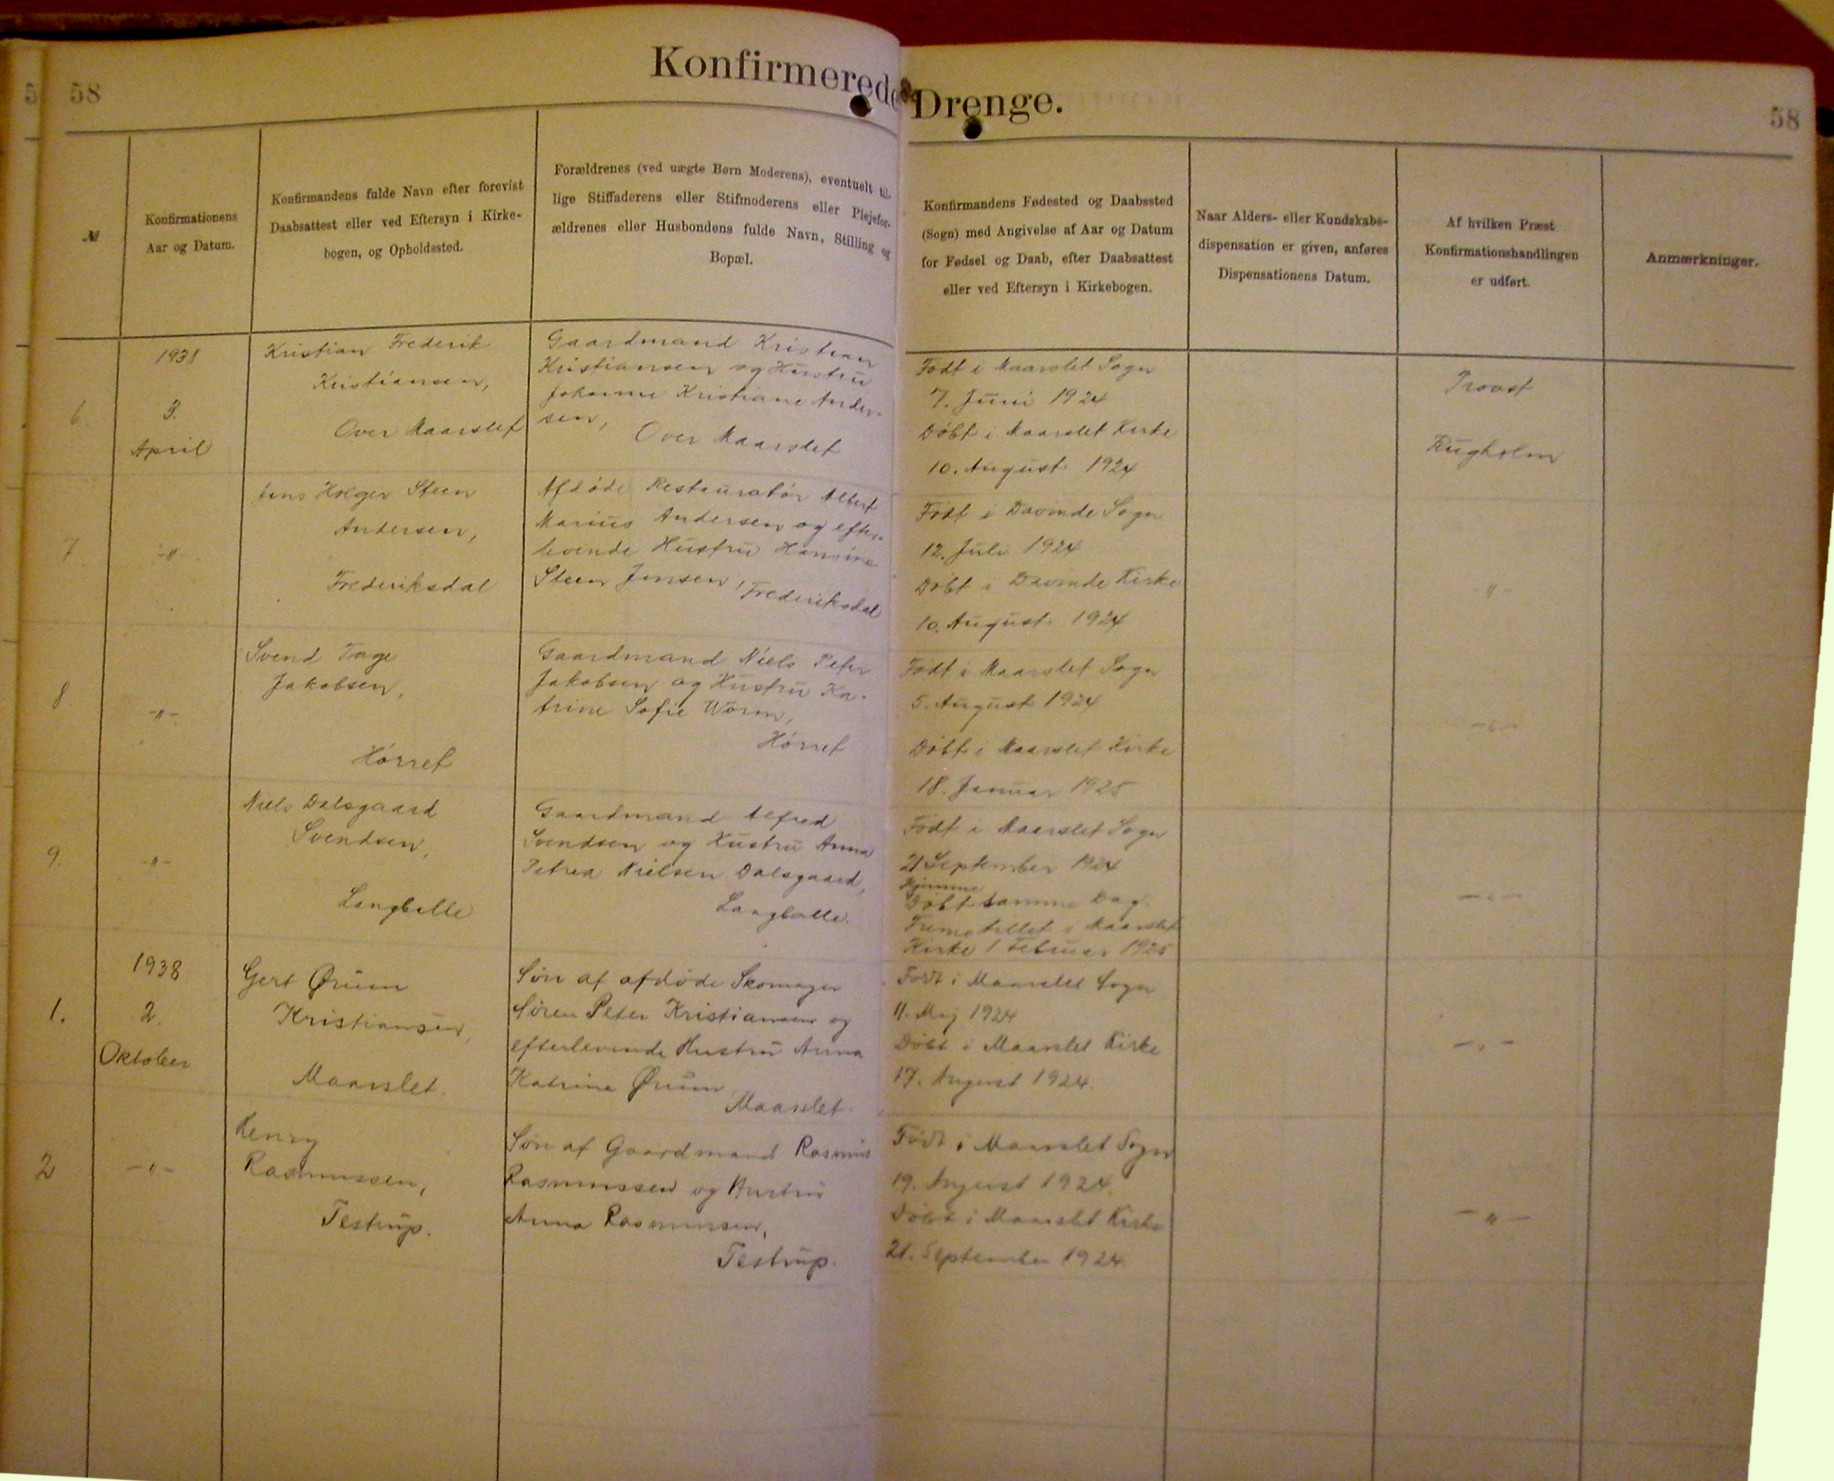 58
Konfirmerede Drenge.
58
№
Konfirmationens
Aar og Datum.
Konfirmandens fulde Navn efter forevist
Daabsattest eller ved Eftersyn i Kirke-
bogen, og Opholdssted.
Forældrenes (ved uægte Børn Moderens), eventuelt til-
lige Stiffaderens eller Stifmoderens eller Plejefor-
ældrenes eller Husbondens fulde Navn, Stilling og
Bopæl.
Konfirmandens Fødested og Daabssted
(Sogn) med Angivelse af Aar og Datum
for Fødsel og Daab, efter Daabsattest
eller ved Eftersyn i Kirkebogen.
Naar Alders- eller Kundskabs-
dispensation er given, anføres
Dispensationens Datum.
Af hvilken Præst
Konfirmationshandlingen
er udført.
Anmærkninger.
6
1938
3.
April
Kristian Frederik
Kristiansen,
Over Maarslet
Gaardmand Kristian
Kristiansen og Hustru
Johanne Kristiane Ander-
sen,
Over Maarslet
Født i Maarslet Sogn
7. Juni 1924
Døbt i Maarslet Kirke
10. August 1924
Provst
Rugholm
7
-"-
Jens Holger Steen
Andersen,
Frederiksdal
Afdøde Restauratør Albert
Marius Andersen og efter-
levende Hustru Hansine
Steen Jensen, Frederiksdal
Født i Davinde Sogn
12. Juli 1924
Døbt i Davinde Kirke
10. August 1924
-"-
8.
-"-
Svend Tage
Jakobsen,
Hørret
Gaardmand Niels Peter
Jakobsen og Hustru Ka-
trine Sofie Worm,
Hørret
Født i Maarslet Sogn
5. August 1924
Døbt i Maarslet Kirke
18. Januar 1925
-"-
9.
-"-
Niels Dalsgaard
Svendsen,
Langballe
Gaardmand Alfred
Svendsen og Hustru Anna
Petrea Nielsen Dalsgaard,
Langballe.
Født i Maarslet Sogn
21 September 1924
Hjemme
Døbt samme Dag.
Fremstillet i Maarslet
Kirke 1 Februar 1925
-"-
1.
1938
2.
Oktober
Gert Ørum
Kristiansen,
Maarslet.
Søn af afdøde Skomager
Søren Peter Kristiansen og
efterlevende Hustru Anna
Katrine Ørum
Maarslet.
Født i Maarslet Sogn
11. Maj 1924
Døbt i Maarslet Kirke
17. August 1924.
-"-
2
-"-
Henry
Rasmussen,
Testrup.
Søn af Gaardmand Rasmus
Rasmussen og Hustru
Anna Rasmussen,
Testrup.
Født i Maarslet Sogn
19. August 1924.
Døbt i Maarslet Kirke
21. September 1924.
-"-